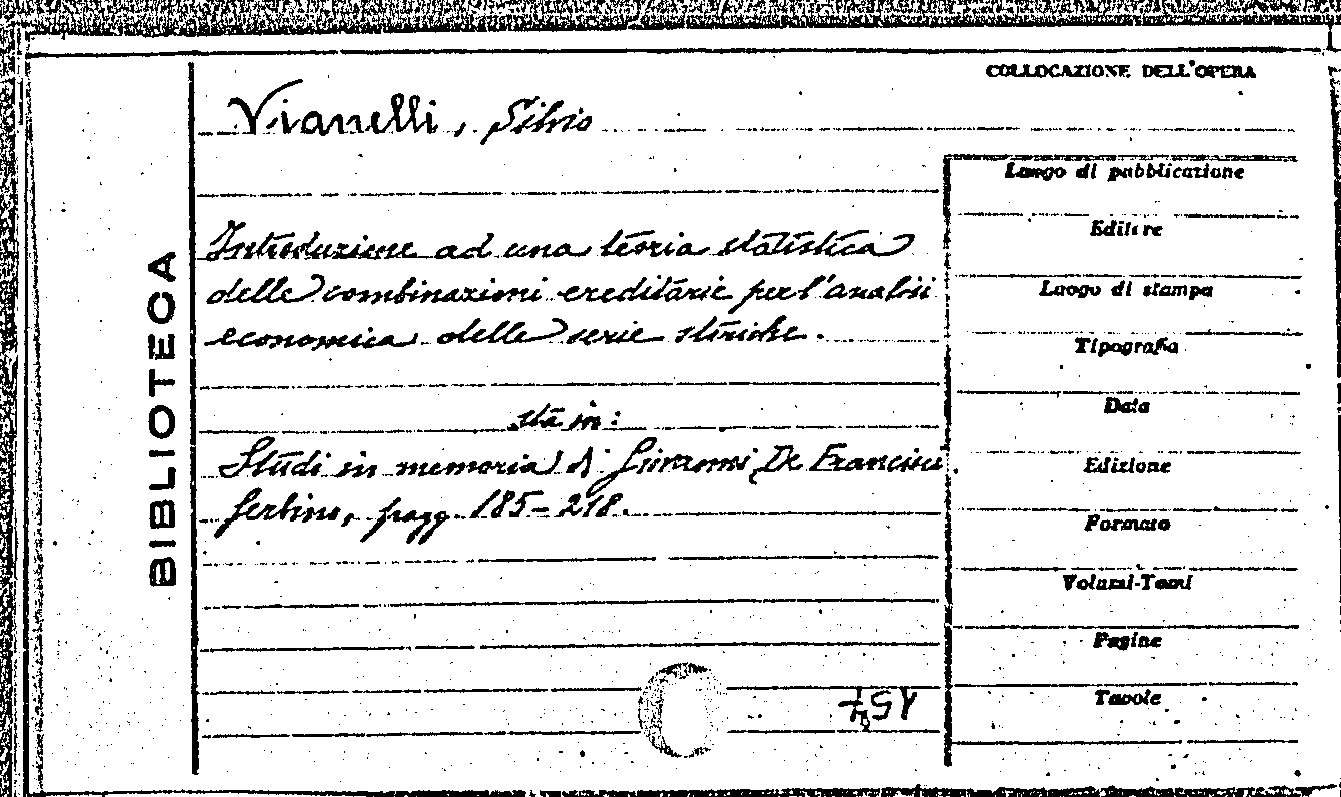 COLLOCAZIONE DELL'OPERA
Vianelli, Silvio
BIBLIOTECA
Introduzione ad una teoria statistica
delle combinazioni ereditarie per l'analisi
economica delle serie storiche.
sta in:
Studi in memoria di Giovanni De Francisci
Gerbino, pagg. 185-218.
Luogo di pubblicazione
Editore
Luogo di stampa
Tipografia
Data
Edizione
Formato
Volumi-Tomi
Pagine
Tavole